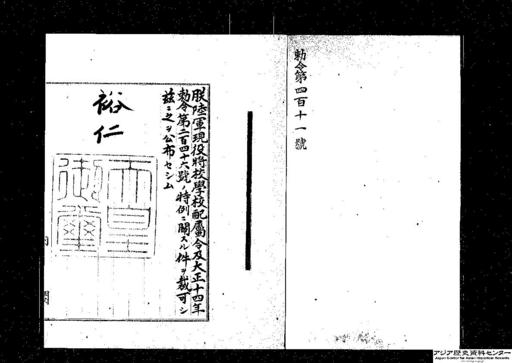 勅令第四百十一號
朕陸軍現役將校學校配屬令及大正十四年
勅令第二百四十六號ノ特例ニ關スル件ヲ裁可シ
茲ニ之ヲ公布セシム
裕仁
天皇
御璽
内閣
アジア歴史資料センター
Japan Center for Asian Historical Records